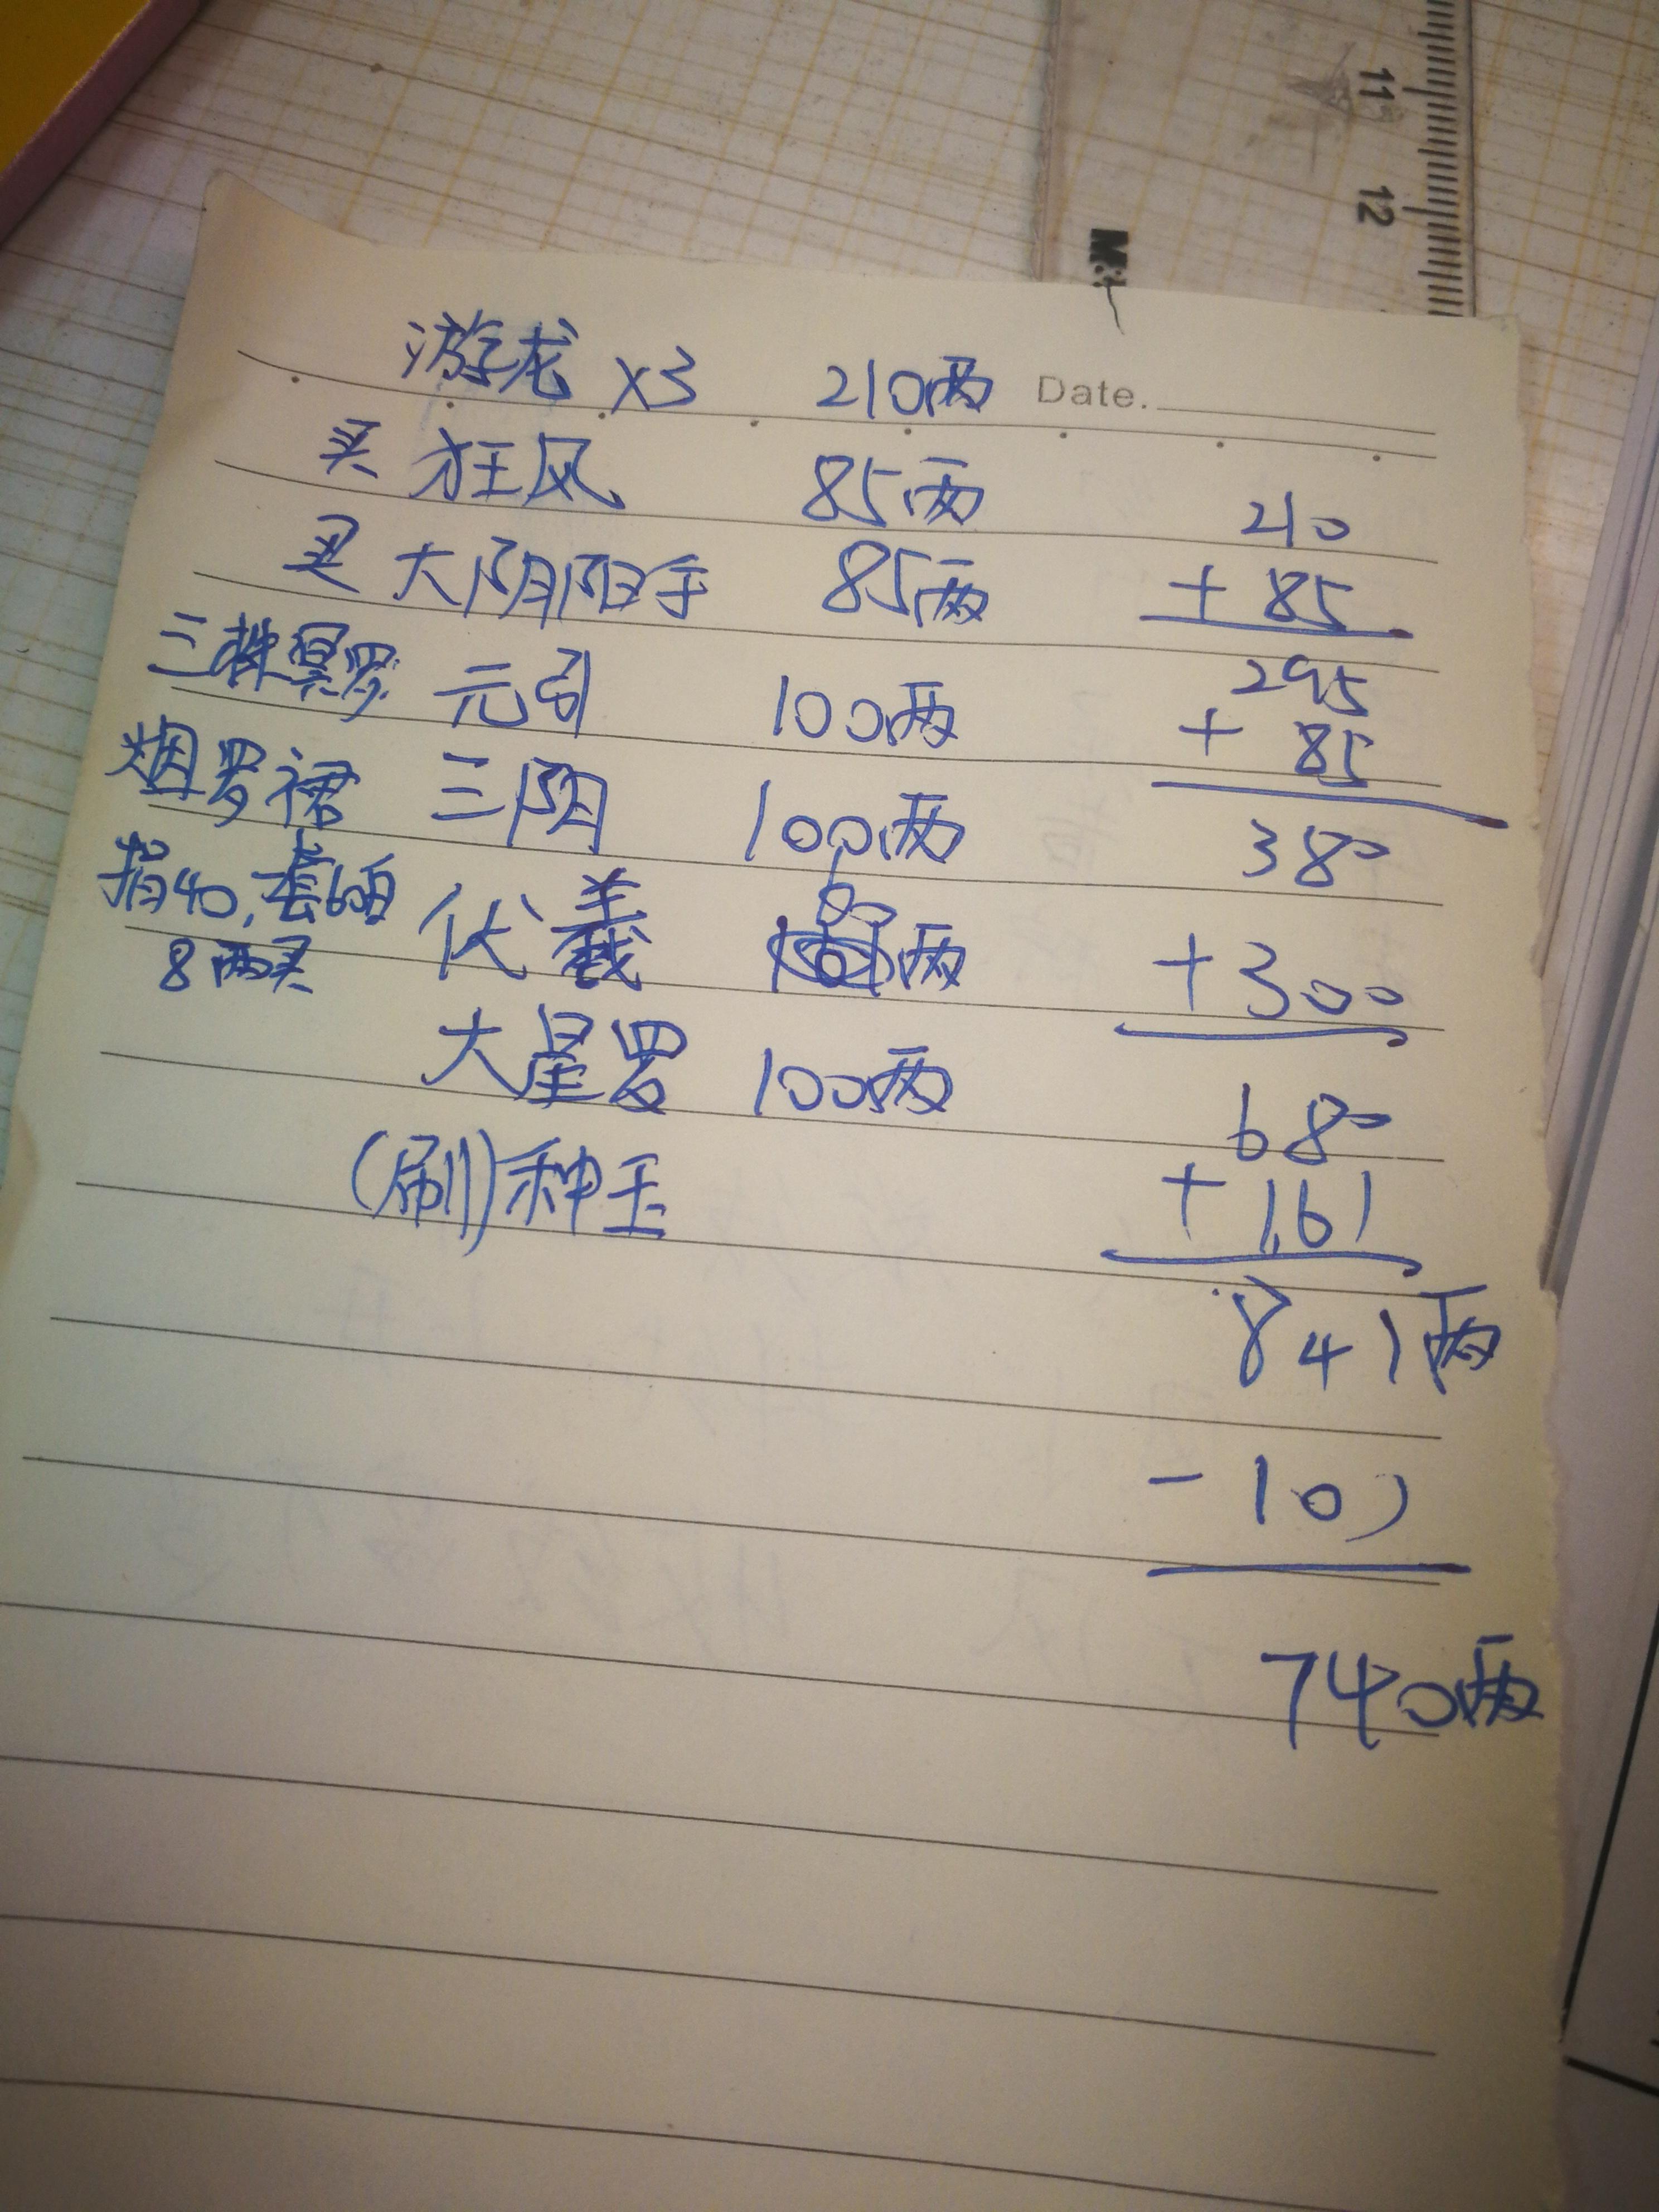 11
12
M
游龙 x3 210两 Date.
买 狂风 85两
买 大阴阳手 85两
三株冥罗 元引 100两
烟罗裙 三阴 100两
捐40,套60
8两买
伏羲 两
大星罗 100两
(刷)种玉
210
+ 85
295
+ 85
380
+300
680
+ 161
841两
- 101
740两